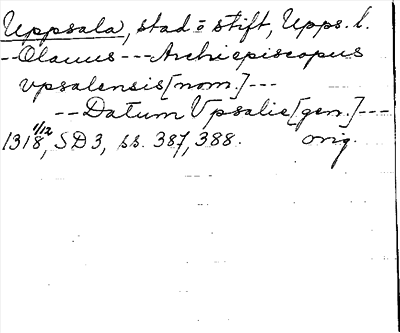 Uppsala, stad o stift, Upps. l.
--Olauus---Archiepiscopus
vpsalensis[nom.]---
--Datum Vpsalie[gen.]---
1318 1/12, SD3, ss. 387, 388. orig.